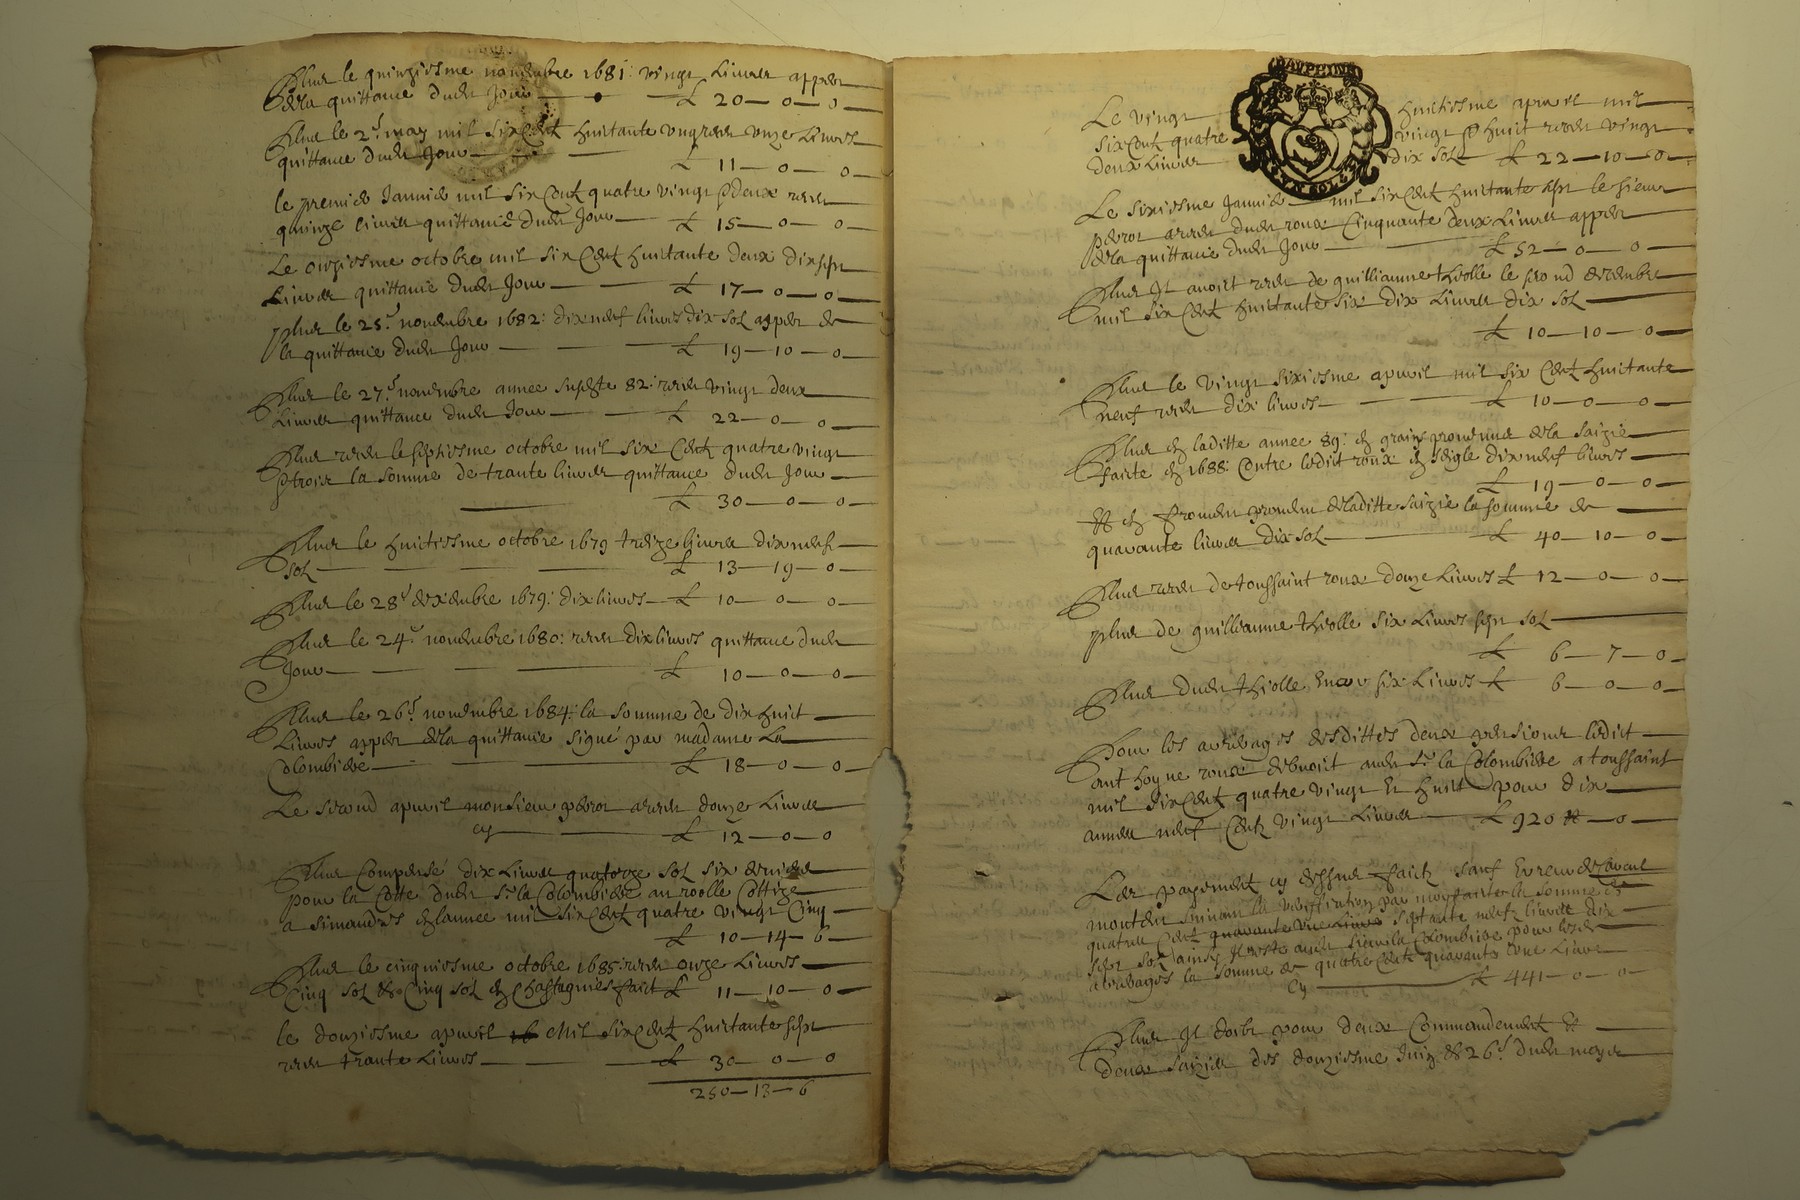 Plus le quinziesme novembre 1681: vingt Livres appert
de la quittance dudit Jour — £ 20 — 0 — 0
Plus le 2e. may mil six Cent huictante un reçu unze Livres
quittance dudit Jour — £ 11 — 0 — 0
le premier Janvier mil six Cent quatre vingt & deux reçu
quinze livres quittance dudit Jour — £ 15 — 0 — 0
Le onziesme octobre mil six Cent huictante deux dix sept
Livres quittance dudit Jour — £ 17 — 0 — 0
plus le 25e. novembre 1682: dix neuf livres dix sol appert de
la quittance dudit Jour — £ 19 — 10 — 0
Plus le 27e. novembre annee susdte 82: reçu vingt deux
Livres quittance dudit Jour — £ 22 — 0 — 0
Plus reçu le septiesme octobre mil six Cent quatre vingt
& trois la somme de trante livres quittance dudit Jour —
£ 30 — 0 — 0
Plus le huictiesme octobre 1679 treize livres dix neuf
sol — £ 13 — 19 — 0
Plus le 28e dexembre 1679: dix livres — £ 10 — 0 — 0
Plus le 24e. novembre 1680: reçu dix livres quittance dudit
Jour — £ 10 — 0 — 0
Plus le 26e. novembre 1684: la somme de dix huict
Livres appert de la quittance signé par madame La
Colombiere — £ 18 — 0 — 0
Le second apvril monsieur perrot a reçu douze Livres
cy — £ 12 — 0 — 0
Plus Compensé dix Livres quatorze sol six deniers
pour la Cotte dudit Sr. la Colombiere au roolle Cottizé
a simandres en lannee mil six Cent quatre vingt Cinq —
£ 10 — 14 — 6
Plus le cinquiesme octobre 1685: reçu onze Livres
Cinq sol & Cinq sol en Chastagnes faict £ 11 — 10 — 0
le douziesme apvril mil six Cent huictante sept
reçu trante Livres — £ 30 — 0 — 0
250 — 13 — 6
DAUPHINE
Le vingt huictiesme apvril mil
six Cent quatre vingt & huit reçu vingt
deux Livres dix sol — £ 22 — 10 — 0
Le sixiesme Janvier mil six Cent huictante sept le sieur
perrot a reçu dudit roux Cinquante deux Livres appert
de la quittance dudit Jour — £ 52 — 0 — 0
Plus Il avoit reçu de guilliaume thiolle le second decembre
mil six Cent huictante six dix Livres dix sol —
£ 10 — 10 — 0
Plus le vingt sixiesme apvril mil six Cent huictante
neuf reçu dix livres — £ 10 — 0 — 0
Plus en laditte annee 89: en grains provenus de la saizie
faicte en 1688: Contre ledict roux en seigle dix neuf livres —
£ 19 — 0 — 0
Et en froment provenu de laditte saizie la somme de
quarante livres dix sol — £ 40 — 10 — 0
Plus reçu de toussaint roux douze Livres £ 12 — 0 — 0
plus de guilleaume thiolle six Livres sept sol —
£ 6 — 7 — 0
Plus dudit thiolle Encor six Livres £ 6 — 0 — 0
Pour les arrerages desdittes deux pensions ledict
anthoyne roux debvoit audit Sr. la Colombiere a toussaint
mil six Cent quatre vingt Et huit pour dix
annees neuf Cent vingt Livres — £ 920 — 0
Les payement cy dessus faict sauf Erreur de Calcul
montent suivant la veriffication par moy faicte la somme de
quatre Cent septante neuf livres dix
sept sol ainsy Il reste audit sieur la Colombiere pour lesdits
arrerages la somme de quatre Cent quarante une Livre
cy — £ 441 — 0 — 0
Plus Il doibt pour deux Commandement Et
deux saizies des douziesme Juin & 26e. dudit moys